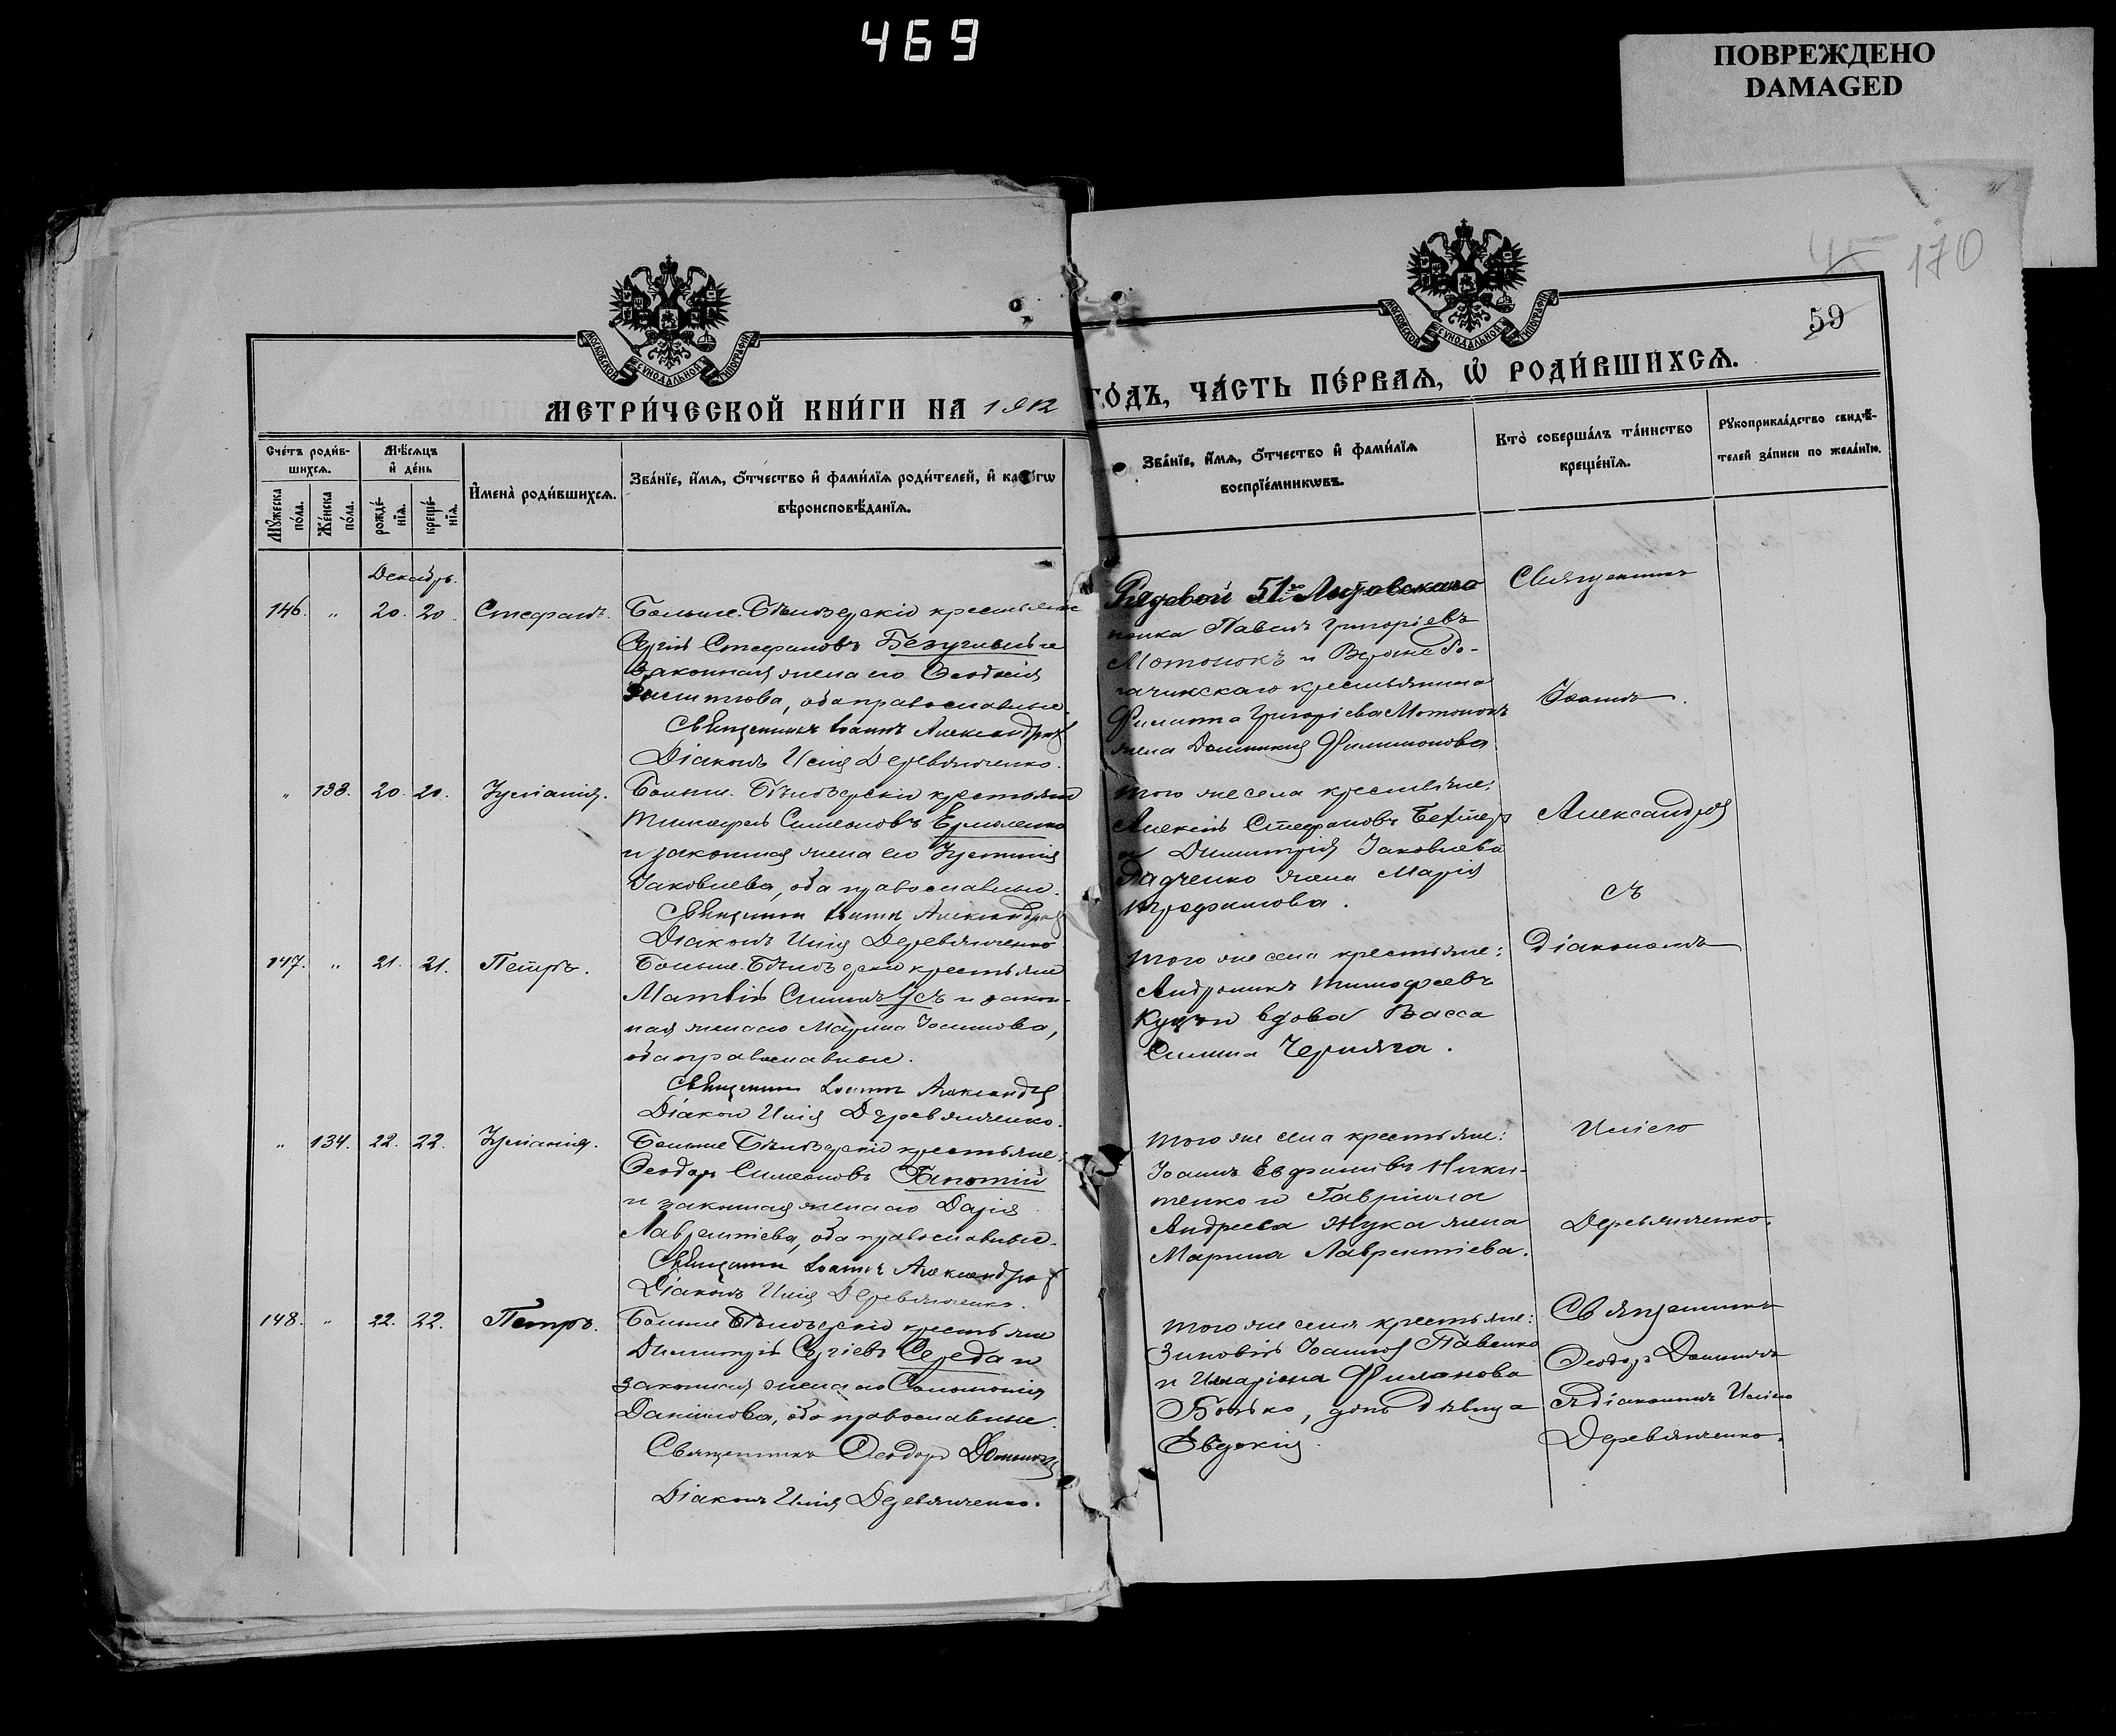 469
ПОВРЕЖДЕНО
DAMAGED
45
170
59
МОСКОВСКОЙ СѴНОДАЛЬНОЙ ТИПОГРАФІИ
МОСКОВСКОЙ СѴНОДАЛЬНОЙ ТИПОГРАФІИ
МЕТРИ́ЧЕСКОЙ КНИ́ГИ НА 1912
ГО́ДЪ, ЧА́СТЬ ПЕ́РВАѦ, Ѡ҆ РОДИ́ВШИХСѦ.
Сче́тъ роди́в-
шихсѧ.
Мꙋ́жеска по́ла.
Же́нска по́ла.
Мѣ́сѧцъ
и҆ де́нь
рожде́-
нїѧ.
креще́-
нїѧ.
И҆мена̀ роди́вшихсѧ.
Зва́нїе, и҆́мѧ, ѻ҆́тчество и҆ фами́лїѧ роди́телей, и҆ како́гѡ
вѣроисповѣ́данїѧ.
Зва́нїе, и҆́мѧ, ѻ҆́тчество и҆ фами́лїѧ
воспрїе́мникѡвъ.
Кто̀ соверша́лъ та́инство
креще́нїѧ.
Рꙋкоприкла́дство свидѣ́-
телей за́писи по жела́нїю.
Декабрь.
146. " 20. 20. Стефанъ.
Больше-Бѣлозерскіе крестьяне
Сергій Стефановъ Безуглый и
законная жена его Ѳеодосія
оба православные.
Священникъ Іоаннъ Александровъ
Діаконъ Илія Деревянченко.
Рядовой 51го Литовскаго
полка Павелъ Григоріевъ
Мотонокъ и Верхне-Ро-
гачикскаго крестьянина
Филиппа Григоріева Мотонокъ
жена Домникія Филимонова
Священникъ
Іоаннъ
" 133. 20. 20. Іуліанія.
Больше-Бѣлозерскіе крестьяне
Тимофей Симеоновъ Ермоленко
и законная жена его Іустинія
Іаковлева, оба православные.
Священникъ Іоаннъ Александровъ
Діаконъ Илія Деревянченко
того же села крестьяне:
Алексій Стефановъ
и Димитрія Іаковлева
Радченко жена Марія
Трофимова.
Александровъ
съ
147. " 21. 21. Петръ.
Больше-Бѣлозерскіе крестьяне
Матвій Силинъ Усъ и закон-
ная жена его Марина
оба православные.
Священникъ Іоаннъ Александровъ
Діаконъ Илія Деревянченко.
того же села крестьяне:
Андроникъ Тимофеевъ
и вдова Васса
Силина Черняга.
діакономъ
" 134. 22. 22. Іуліанія.
Больше-Бѣлозерскіе крестьяне
Ѳеодоръ Симеоновъ
и законная жена его Дарія
Лаврентіева, оба православные.
Священникъ Іоаннъ Александровъ
Діаконъ Илія Деревянченко.
того же села крестьяне:
Іоаннъ Евфиміевъ Ники-
тенко и Гавріила
Андреева Жука жена
Марина Лаврентіева.
Иліею
Деревянченко.
148. " 22. 22. Петръ.
Больше-Бѣлозерскіе крестьяне
Димитрій Сергіевъ Середа и
законная жена его Соломонія
Даніилова, оба православные
Священникъ Ѳеодоръ
Діаконъ Илія Деревянченко.
того же села крестьяне:
Зиновій Іоанновъ Павенко
и Иларіона Филонова
Бойко, дочь дѣвица
Евдокія.
Священникъ
Ѳеодоръ
съ діакономъ Иліею
Деревянченко.